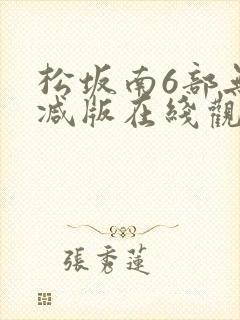 松坂南6部无
减版在綫觀
張秀蓮